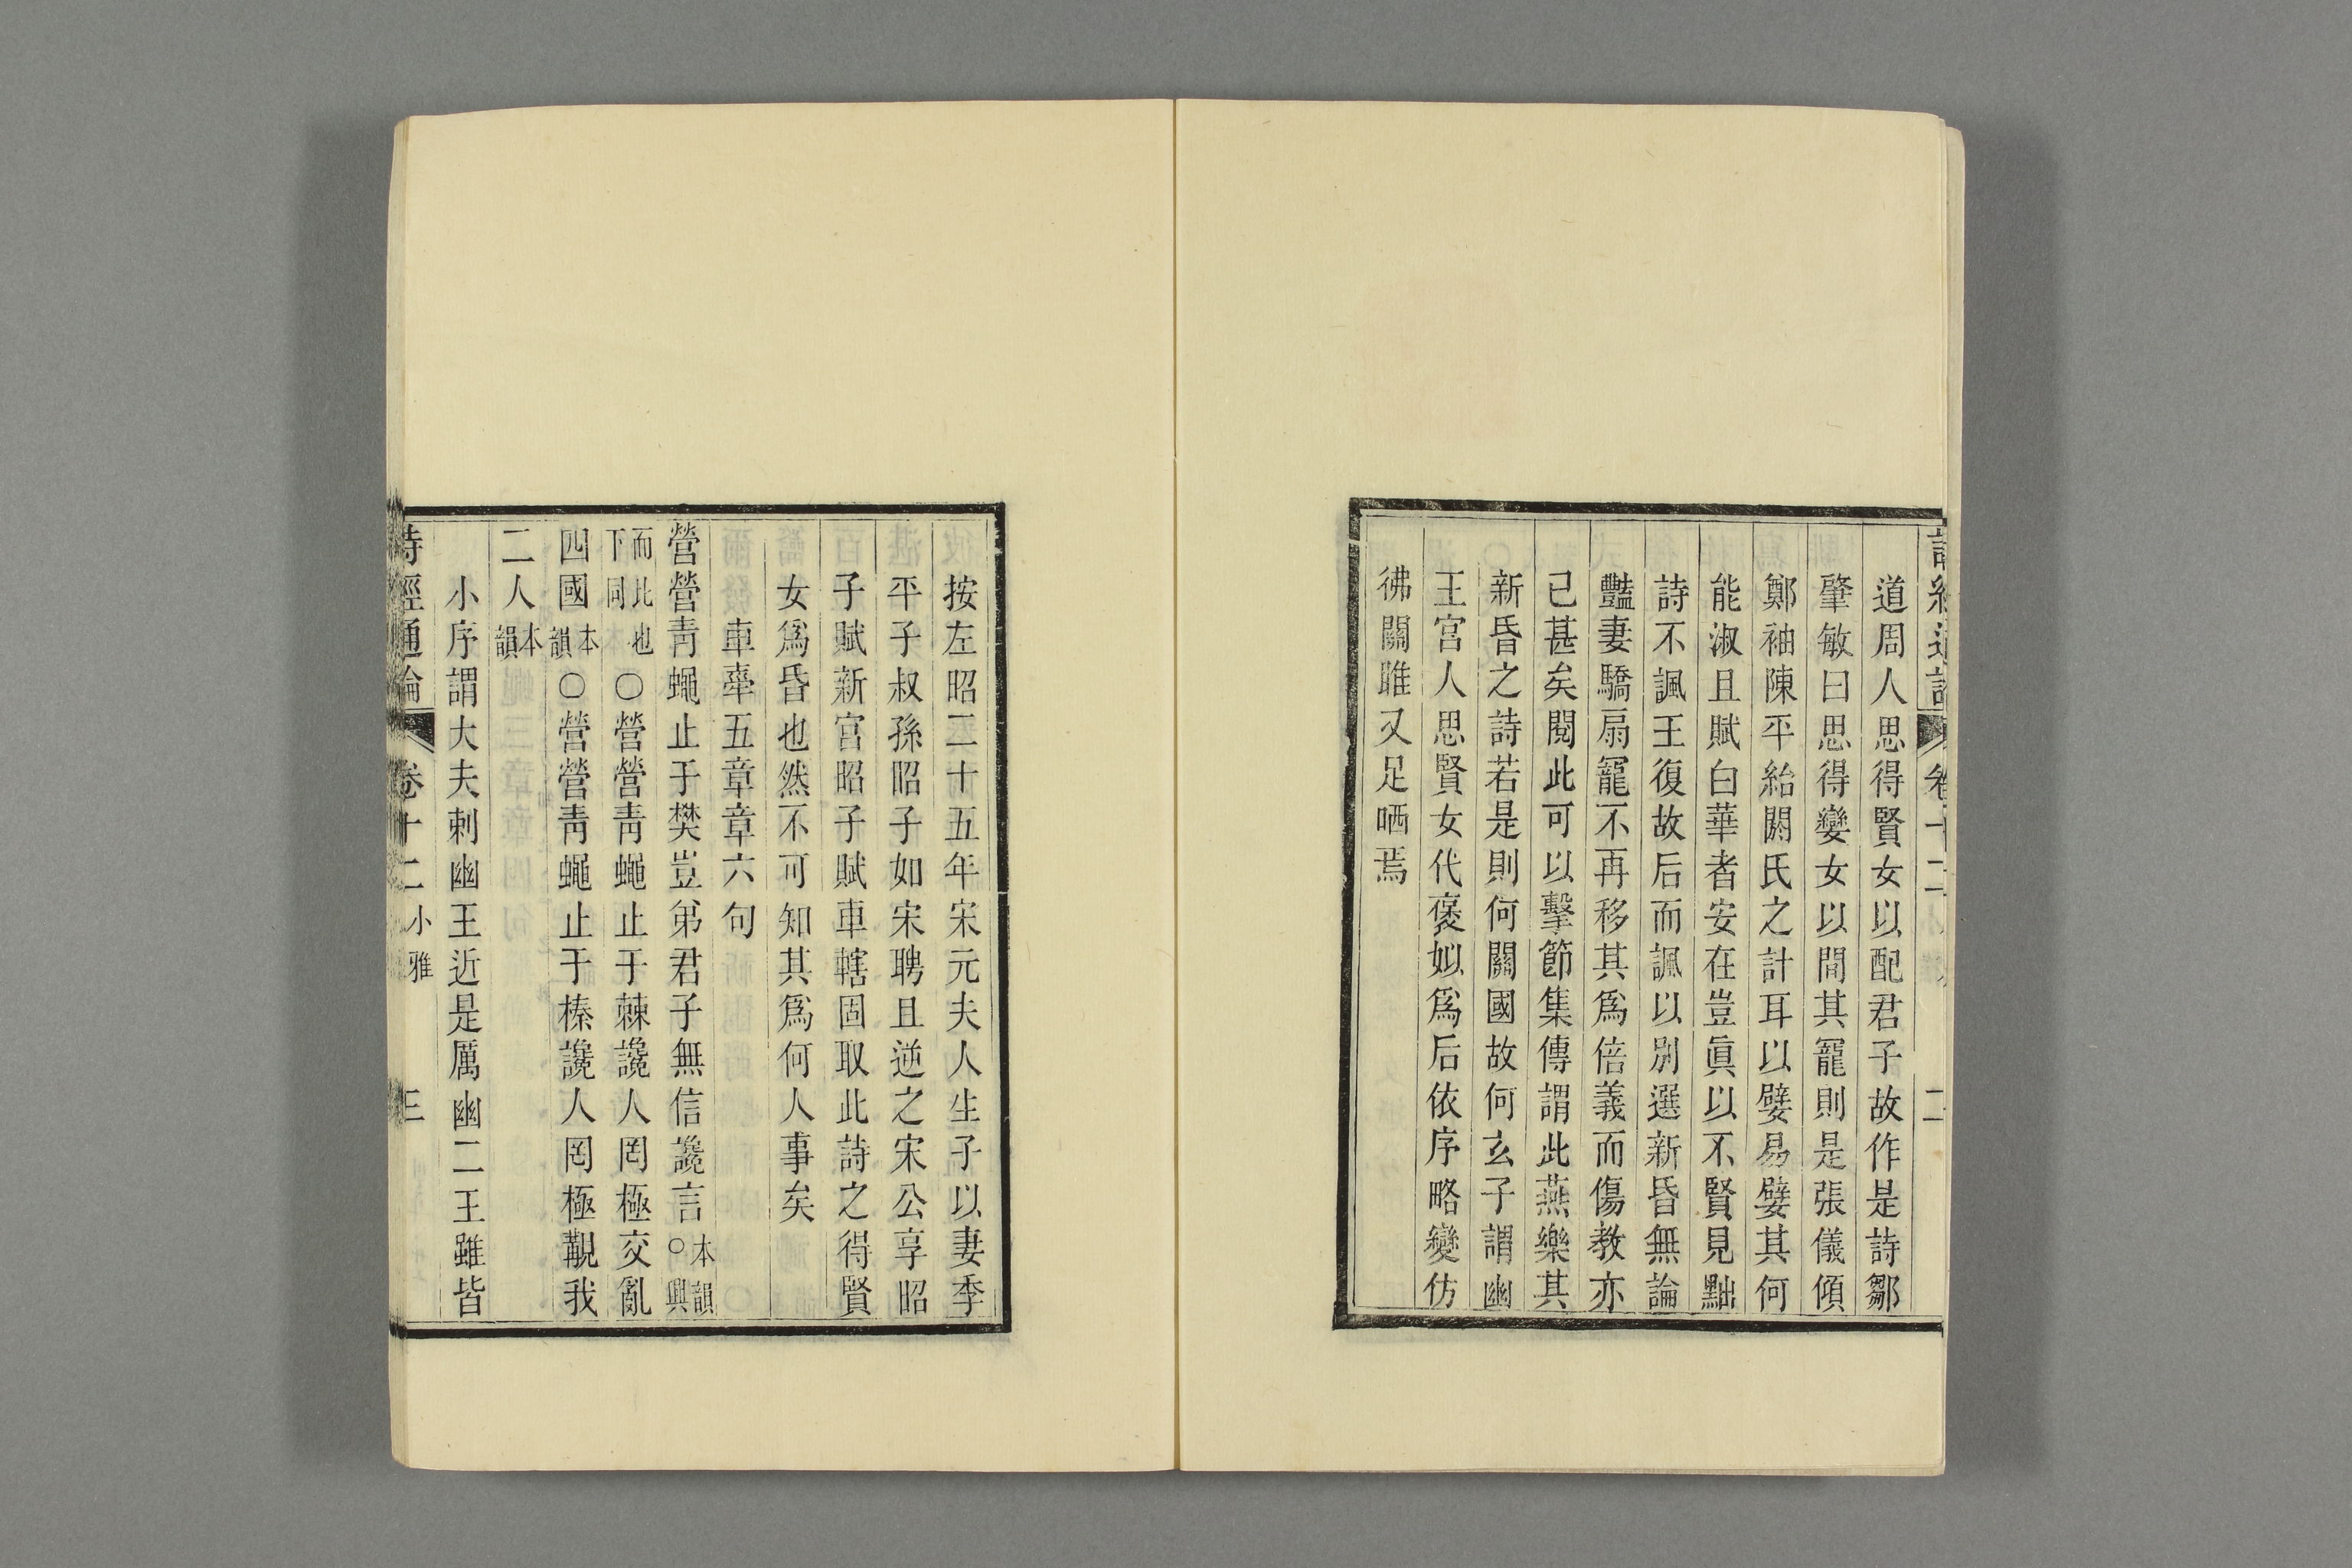 詩經通論 卷十二 二
道周人思得賢女以配君子故作是詩鄒
肇敏曰思得孌女以間其寵則是張儀傾
鄭袖陳平紿閼氏之計耳以嬖易嬖其何
能淑且賦白華者安在豈真以不賢見黜
詩不諷王復故后而諷以別選新昏無論
豔妻驕扇寵不再移其為倍義而傷教亦
已甚矣閱此可以擊節集傳謂此燕樂其
新昏之詩若是則何關國故何玄子謂幽
王宮人思賢女代褒姒為后依序略變仿
彿關雎又足哂焉
按左昭二十五年宋元夫人生子以妻季
平子叔孫昭子如宋聘且逆之宋公享昭
子賦新宮昭子賦車轄固取此詩之得賢
女爲昏也然不可知其爲何人事矣
車舝五章章六句
營營靑蠅止于樊豈弟君子無信讒言本韻○興
而比也下同○營營靑蠅止于棘讒人罔極交亂
四國本韻○營營靑蠅止于榛讒人罔極覯我
二人本韻
小序謂大夫刺幽王近是厲幽二王雖皆
詩經通論 卷十二 小雅 三